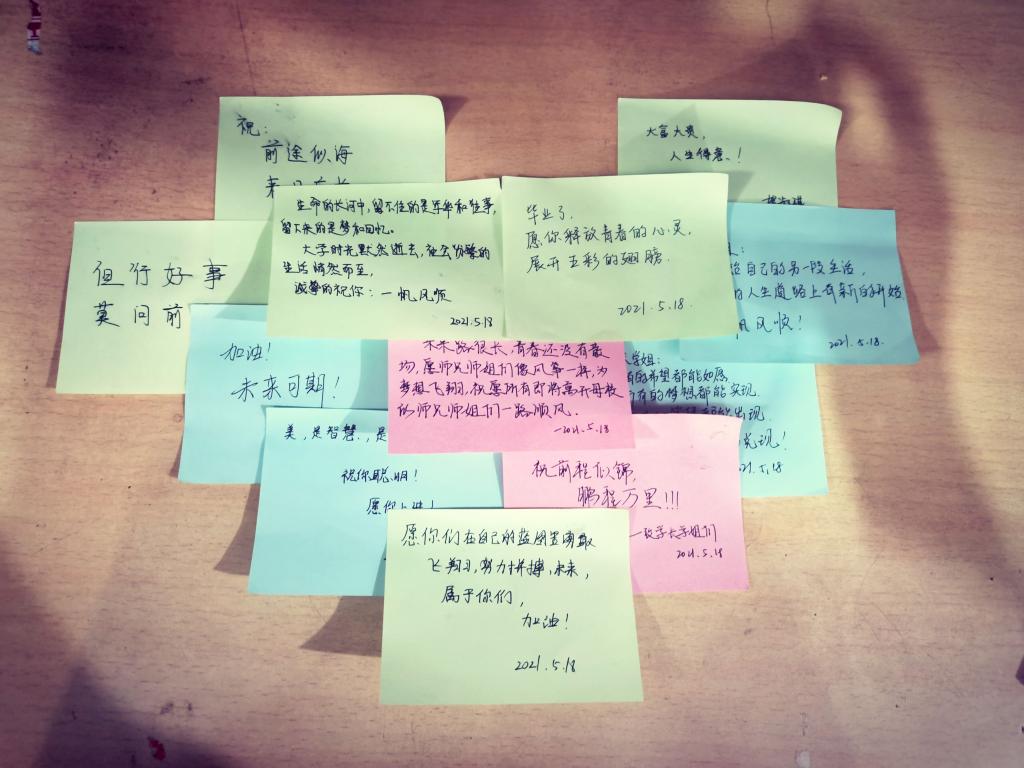 祝：
前途似海
来日方长
大富大贵，
人生得意！
生命的长河中，留不住的是年华和往事，
留下来的是梦和回忆。
大学时光默然逝去，社会的
生活悄然而至，
诚挚的祝你：一帆风顺
2021.5.18
毕业了，
愿你释放青春的心灵，
展开五彩的翅膀
2021.5.18.
自己的另一段生活，
人生道路上有新的开始
帆风顺！
2021.5.18.
但行好事
莫问前
加油！
未来可期！
未来路很长，青春还没有散
场，愿师兄师姐们像风筝一样，为
梦想飞翔，祝愿所有即将离开母校
的师兄师姐们一路顺风。
—2021.5.18
学姐：
有的希望都能如愿
所有的梦想都能实现
能出现
兑现！
21.5.18
美，是智慧，是
祝你聪明！
愿你
祝前程似锦，
鹏程万里!!!
—致学长学姐们
2021.5.18
愿你们在自己的蓝图里勇敢
飞翔，努力拼搏，未来，
属于你们，
加油！
2021.5.18